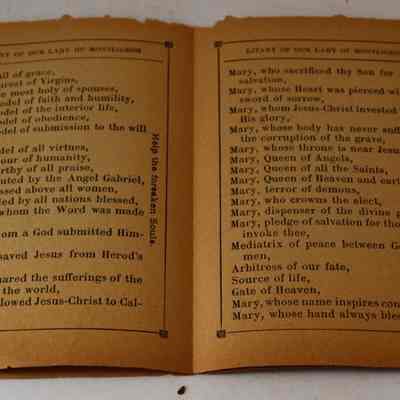 ANY OF OUR LADY OF MONTLIGEON
ll of grace,
urest of Virgins,
e most holy of spouses,
odel of faith and humility,
del of the interior life,
del of obedience,
del of submission to the will
del of all virtues,
our of humanity,
rthy of all praise,
uted by the Angel Gabriel,
essed above all women,
led by all nations blessed,
whom the Word was made
om a God submitted Him-
saved Jesus from Herod's
hared the sufferings of the
the world,
lowed Jesus-Christ to Cal-
Help the forsaken Souls.
LITANY OF OUR LADY OF MONTLIGEO
Mary, who sacrificed thy Son for
salvation,
Mary, whose Heart was pierced wi
sword of sorrow,
Mary, whom Jesus-Christ invested
His glory,
Mary, whose body has never suf
the corruption of the grave,
Mary, whose throne is near Jesu
Mary, Queen of Angels,
Mary, Queen of all the Saints,
Mary, Queen of Heaven and eart
Mary, terror of demons,
Mary, who crowns the elect,
Mary, dispenser of the divine
Mary, pledge of salvation for tho
invoke thee,
Mediatrix of peace between G
men,
Arbitress of our fate,
Source of life,
Gate of Heaven,
Mary, whose name inspires con
Mary, whose hand always bles